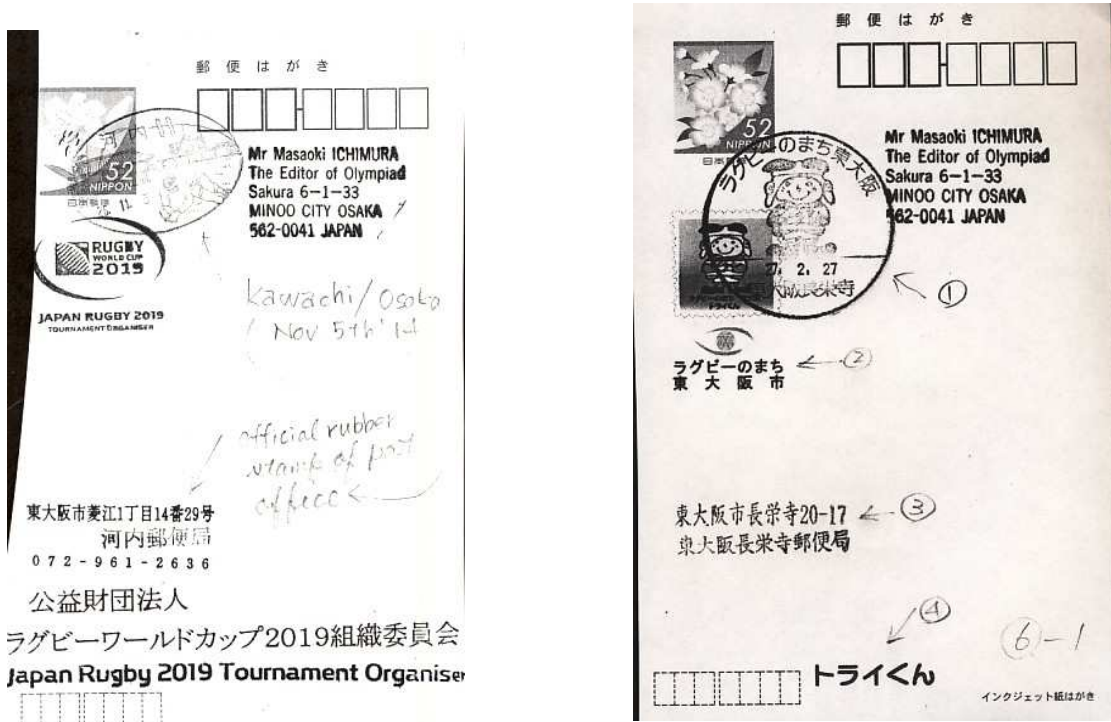 郵便はがき
河内
52
NIPPON
日本郵便
Mr Masaoki ICHIMURA
The Editor of Olympiad
Sakura 6-1-33
MINOO CITY OSAKA
562-0041 JAPAN
RUGBY
WORLD CUP
2019
JAPAN RUGBY 2019
TOURNAMENT ORGANISER
kawachi/Osaka
Nov 5th '14
official rubber
stamp of post
office
東大阪市菱江1丁目14番29号
河内郵便局
072-961-2636
公益財団法人
ラグビーワールドカップ2019組織委員会
Japan Rugby 2019 Tournament Organiser
郵便はがき
52
NIPPON
日本郵便
Mr Masaoki ICHIMURA
The Editor of Olympiad
Sakura 6-1-33
MINOO CITY OSAKA
562-0041 JAPAN
ラグビーのまち東大阪
27. 2. 27
東大阪長栄寺
トライくん
①
ラグビーのまち
東大阪市
②
東大阪市長栄寺20-17
③
東大阪長栄寺郵便局
④
⑥-1
トライくん
インクジェット紙はがき